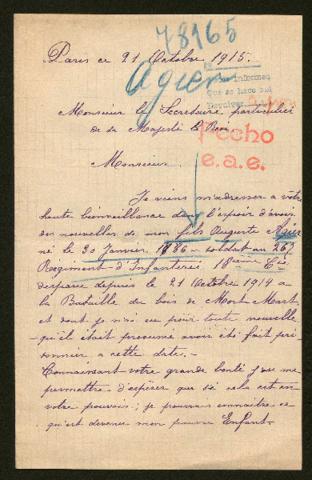 78165
Paris ce 21 Octobre 1915.
Agier
Monsieur le Secretaire particulier
de sa Majesté le Roi
Pecho
e.a.e.
Monsieur
Je viens m'adresser a votre
haute bienveillance dans l'espoir d'avoir
des nouvelles de mon fils Auguste Agier
né le 30 Janvier 1886 - soldat au 267
Régiment d'Infanterie 18ème Cie
disparu depuis le 21 Octobre 1914 a
la Bataille du bois de Mort-Mart
et dont je n'ai eu pour toute nouvelle
qu'il était presumé avoir été fait pri-
sonnier a cette date.-
Connaissant votre grande bonté j'ose me
permettre d'espérer que si cela est en
votre pouvoir; je pourrai connaître ce
qu'est devenu mon pauvre Enfant.